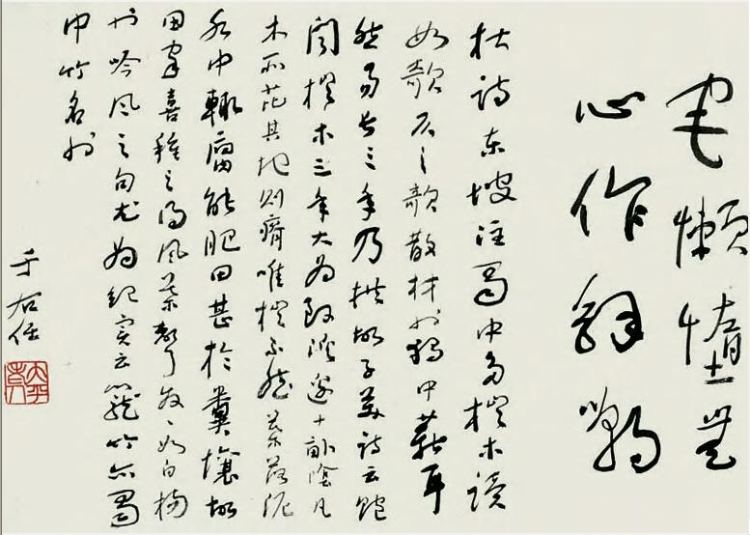 宅懶惰無
心作解嘲
杜詩東坡注蜀中多榿木讀
如欹仄之欹散材也獨中薪耳
然易長三年乃拱故子美詩云飽
聞榿木三年大為致溪邊十畝陰凡
木所芘其地則瘠唯榿不然葉落泥
水中輒腐能肥田甚於糞壤故
田家喜種之得風葉聲發々如白楊
也吟風之句尤為紀實云籠竹亦蜀
中竹名也
于右任